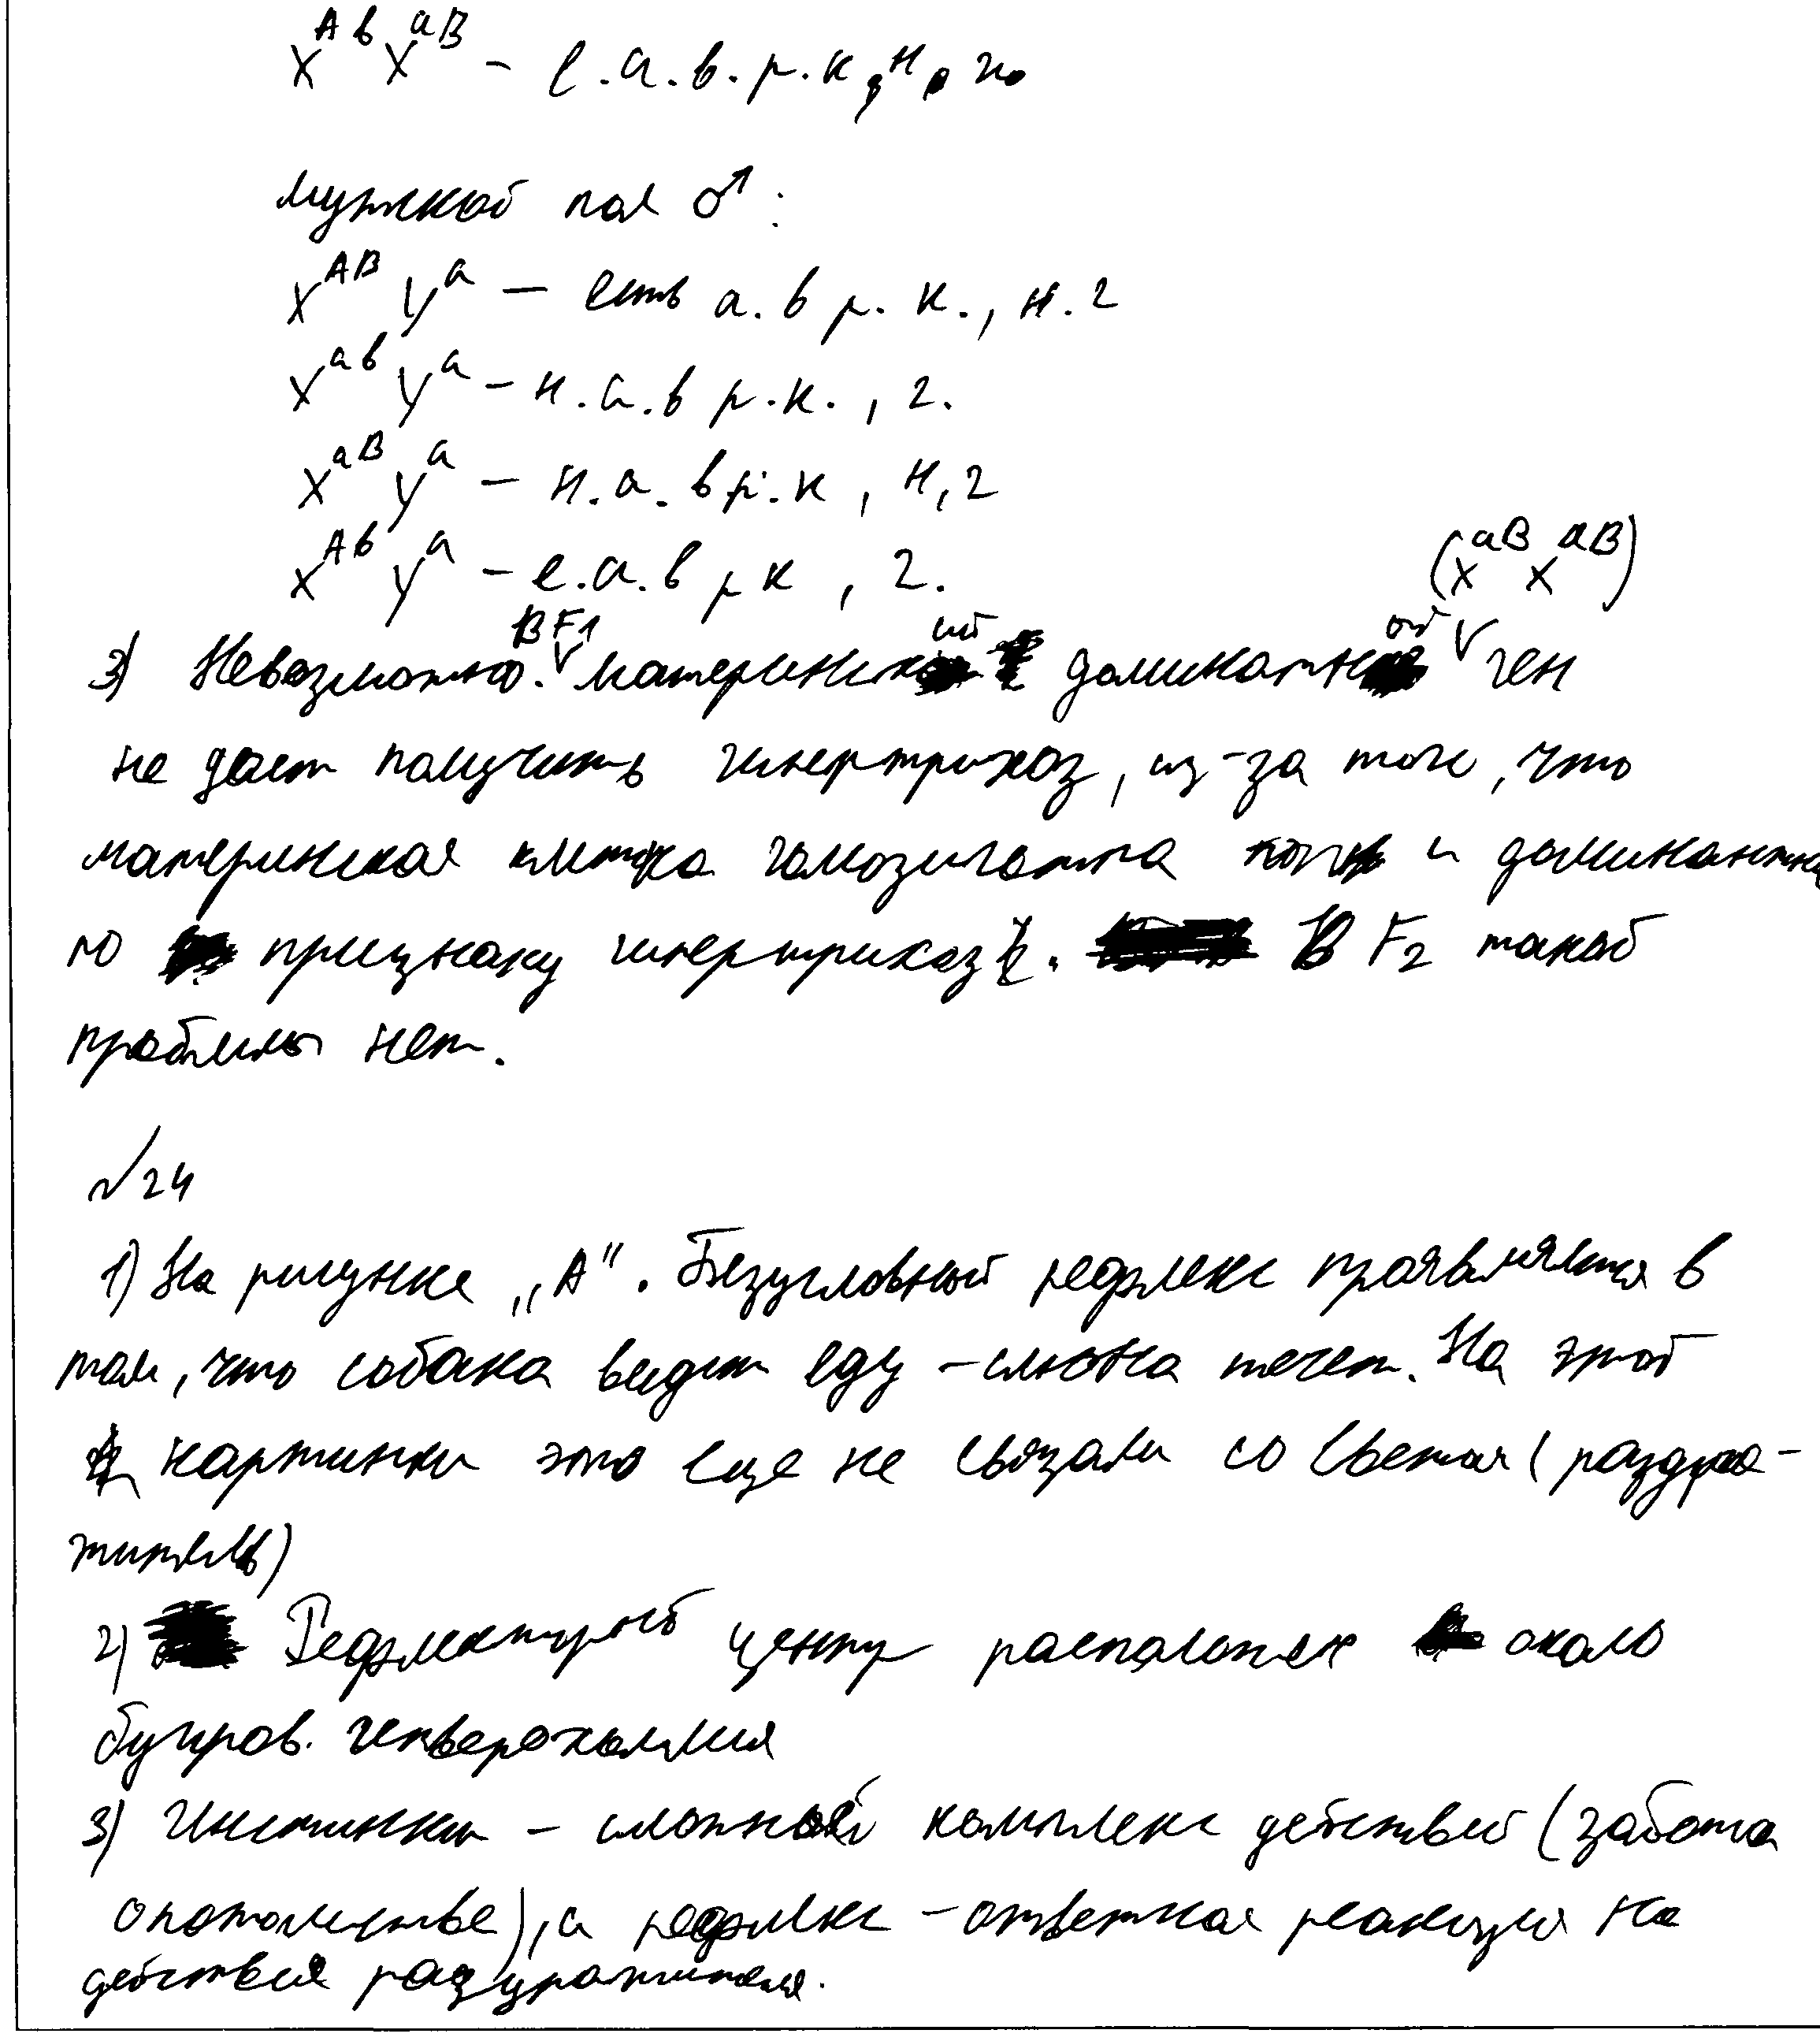 X^Ab X^aB – е.а.в.р.к, н, г
мужской пол ♂:
X^AB Y^a – есть а. в р. к., н. г
X^ab Y^a – н.а.в р.к., г.
X^aB Y^a – н.а.в р.к, н, г
X^Ab Y^a – е.а.в р к, г.
3) Невозможно. В F1 материнский доминатн от (X^aB X^aB) ген
не даст получить гипертрихоз, из-за того, что
материнская клетка гомозигота и доминантна
по признаку гипертрихоз. В F2 такой
проблемы нет.
№24
1) На рисунке „А". Безусловный рефлекс проявляется в
том, что собака видит еду – слюна течет. На этой
картинки это еще не связали со светом (раздра-
житель)
2) Рефлекторный центр расположен около
бугров. четверохолмия
3) Инстинкт – сложный комплекс действий (забота
о потомстве), а рефлекс – ответная реакция на
действия раздражителя.